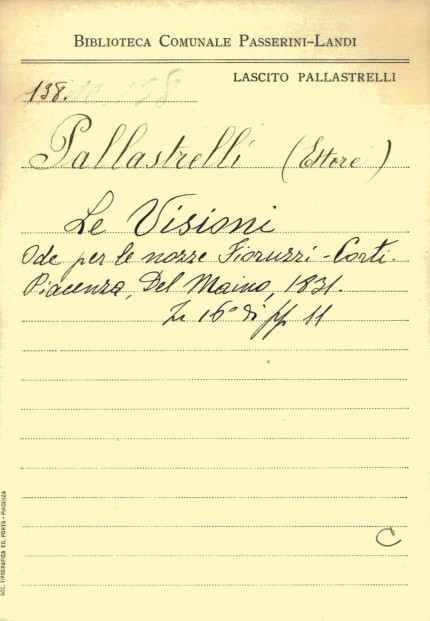 BIBLIOTECA COMUNALE PASSERINI-LANDI
LASCITO PALLASTRELLI
138.
Pallastrelli (Ettore)
Le Visioni
Ode per le nozze Fioruzzi - Corti.
Piacenza, Del Maino, 1831.
In 16° di pp 11
C
SOC. TIPOGRAFICA ED. PORTA - PIACENZA